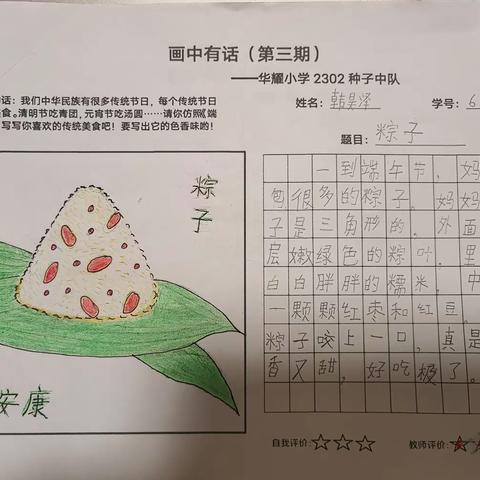 画中有话（第三期）
——华耀小学 2302 种子中队
姓名：韩昊泽 学号：6
话：我们中华民族有很多传统节日，每个传统节日
美食。清明节吃青团，元宵节吃汤圆……请你仿照《端
写写你喜欢的传统美食吧！要写出它的色香味哟！
题目：粽子
粽子
安康
一到端午节，妈
包很多的粽子。妈妈
子是三角形的。外面
层嫩绿色的粽叶，里
白白胖胖的糯米，中
一颗颗红枣和红豆。
粽子咬上一口，真是
香又甜，好吃极了。
自我评价：☆☆☆ 教师评价：☆